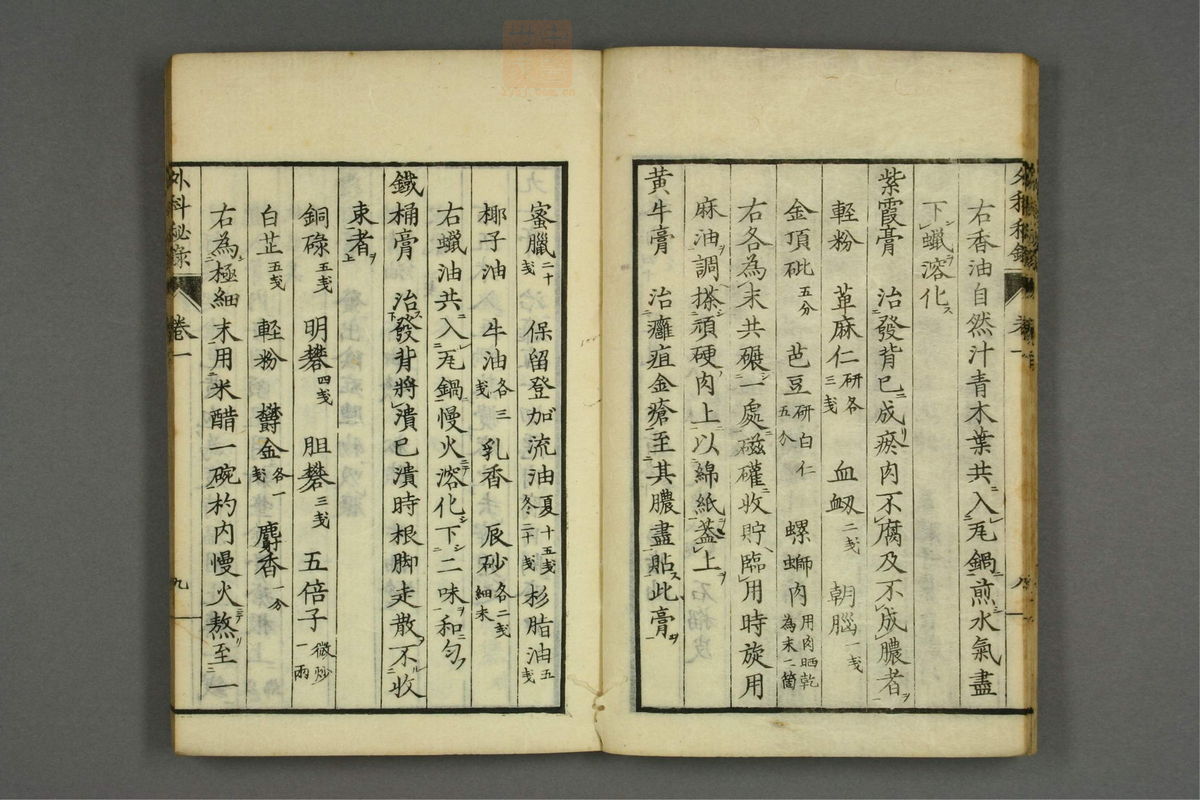 右香油自然汁青木葉共入瓦鍋煎水氣盡
下蠟溶化
紫霞膏　治發背已成瘀肉不腐及不成膿者
輕粉　萆麻仁研各三戔　血蝎二戔　朝腦一戔
金頂砒五分　芭豆研白仁五分　螺螄肉用肉晒乾為末二箇
右各為末共碾一處磁礶收貯臨用時旋用
麻油調搽頑硬肉上以綿紙蓋上
黄牛膏　治癰疽金瘡至其膿盡貼此膏
蜜臘二十戔　保留登加流油夏十五戔冬二十戔　杉脂油五戔
椰子油　牛油各三戔　乳香　辰砂各二戔細末
右蠟油共入瓦鍋慢火溶化下二味和勻
鐵桶膏　治發背將潰已潰時根脚走散不收
束者
銅碌五戔　明礬四戔　胆礬三戔　五倍子微炒一兩
白芷五戔　軽粉　欝金各一戔　麝香一分
右為極細末用米醋一碗杓内慢火熬至一
外科秘录　卷一　九